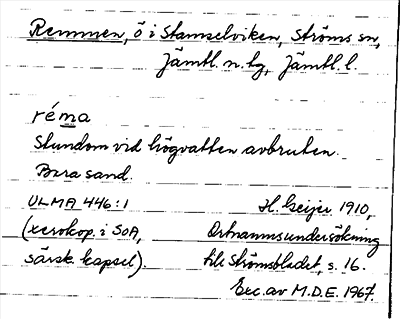 Remmen, ö i Stamselviken, Ströms sn,
Jämtl. n. tg, Jämtl. l.
réma
Stundom vid högvatten avbruten.
Bara sand.
ULMA 446:1 H. Geijer 1910,
(xerokop. i SOA, Ortnamnsundersökning
särsk. kapsel). till Strömsbladet, s. 16.
Exc. av M.D.E. 1967.